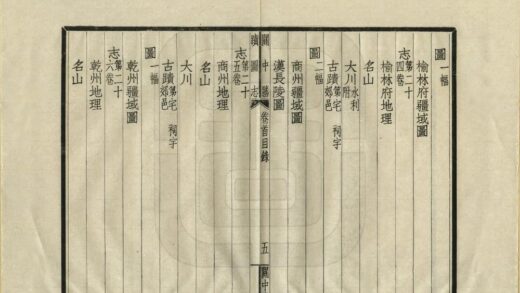 圖一幅
榆林府疆域圖
志第二十四卷
榆林府地理
名山
大川水利附
古蹟郊邑第宅祠宇
圖二幅
商州疆域圖
漢長陵圖
關中勝蹟圖志 卷首目錄 五
志第二十五卷
商州地理
名山
大川
古蹟郊邑第宅祠宇
圖一幅
乾州疆域圖
志第二十六卷
乾州地理
名山